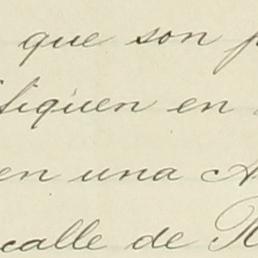 que son p
fiquen en
en una A
calle de R